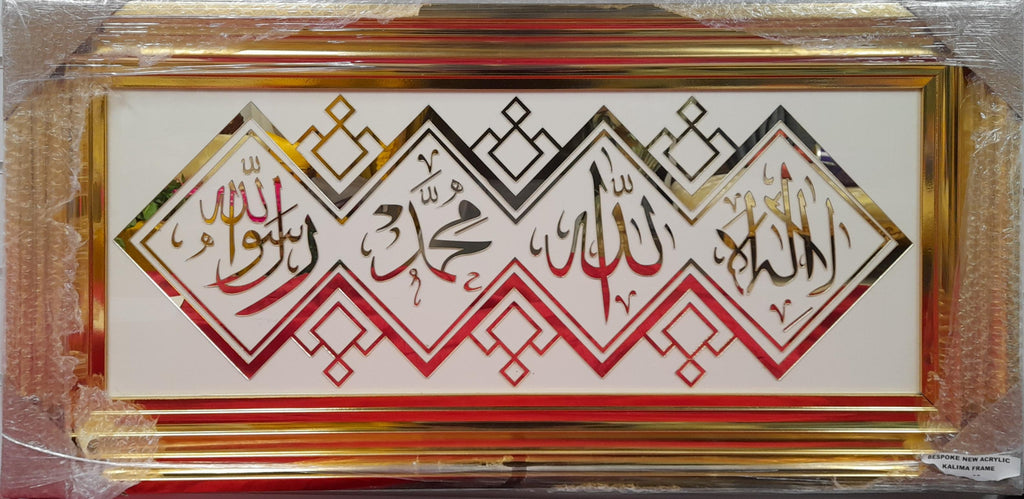 لا اله الا الله محمد رسول الله
BESPOKE NEW ACRYLIC
KALIMA FRAME